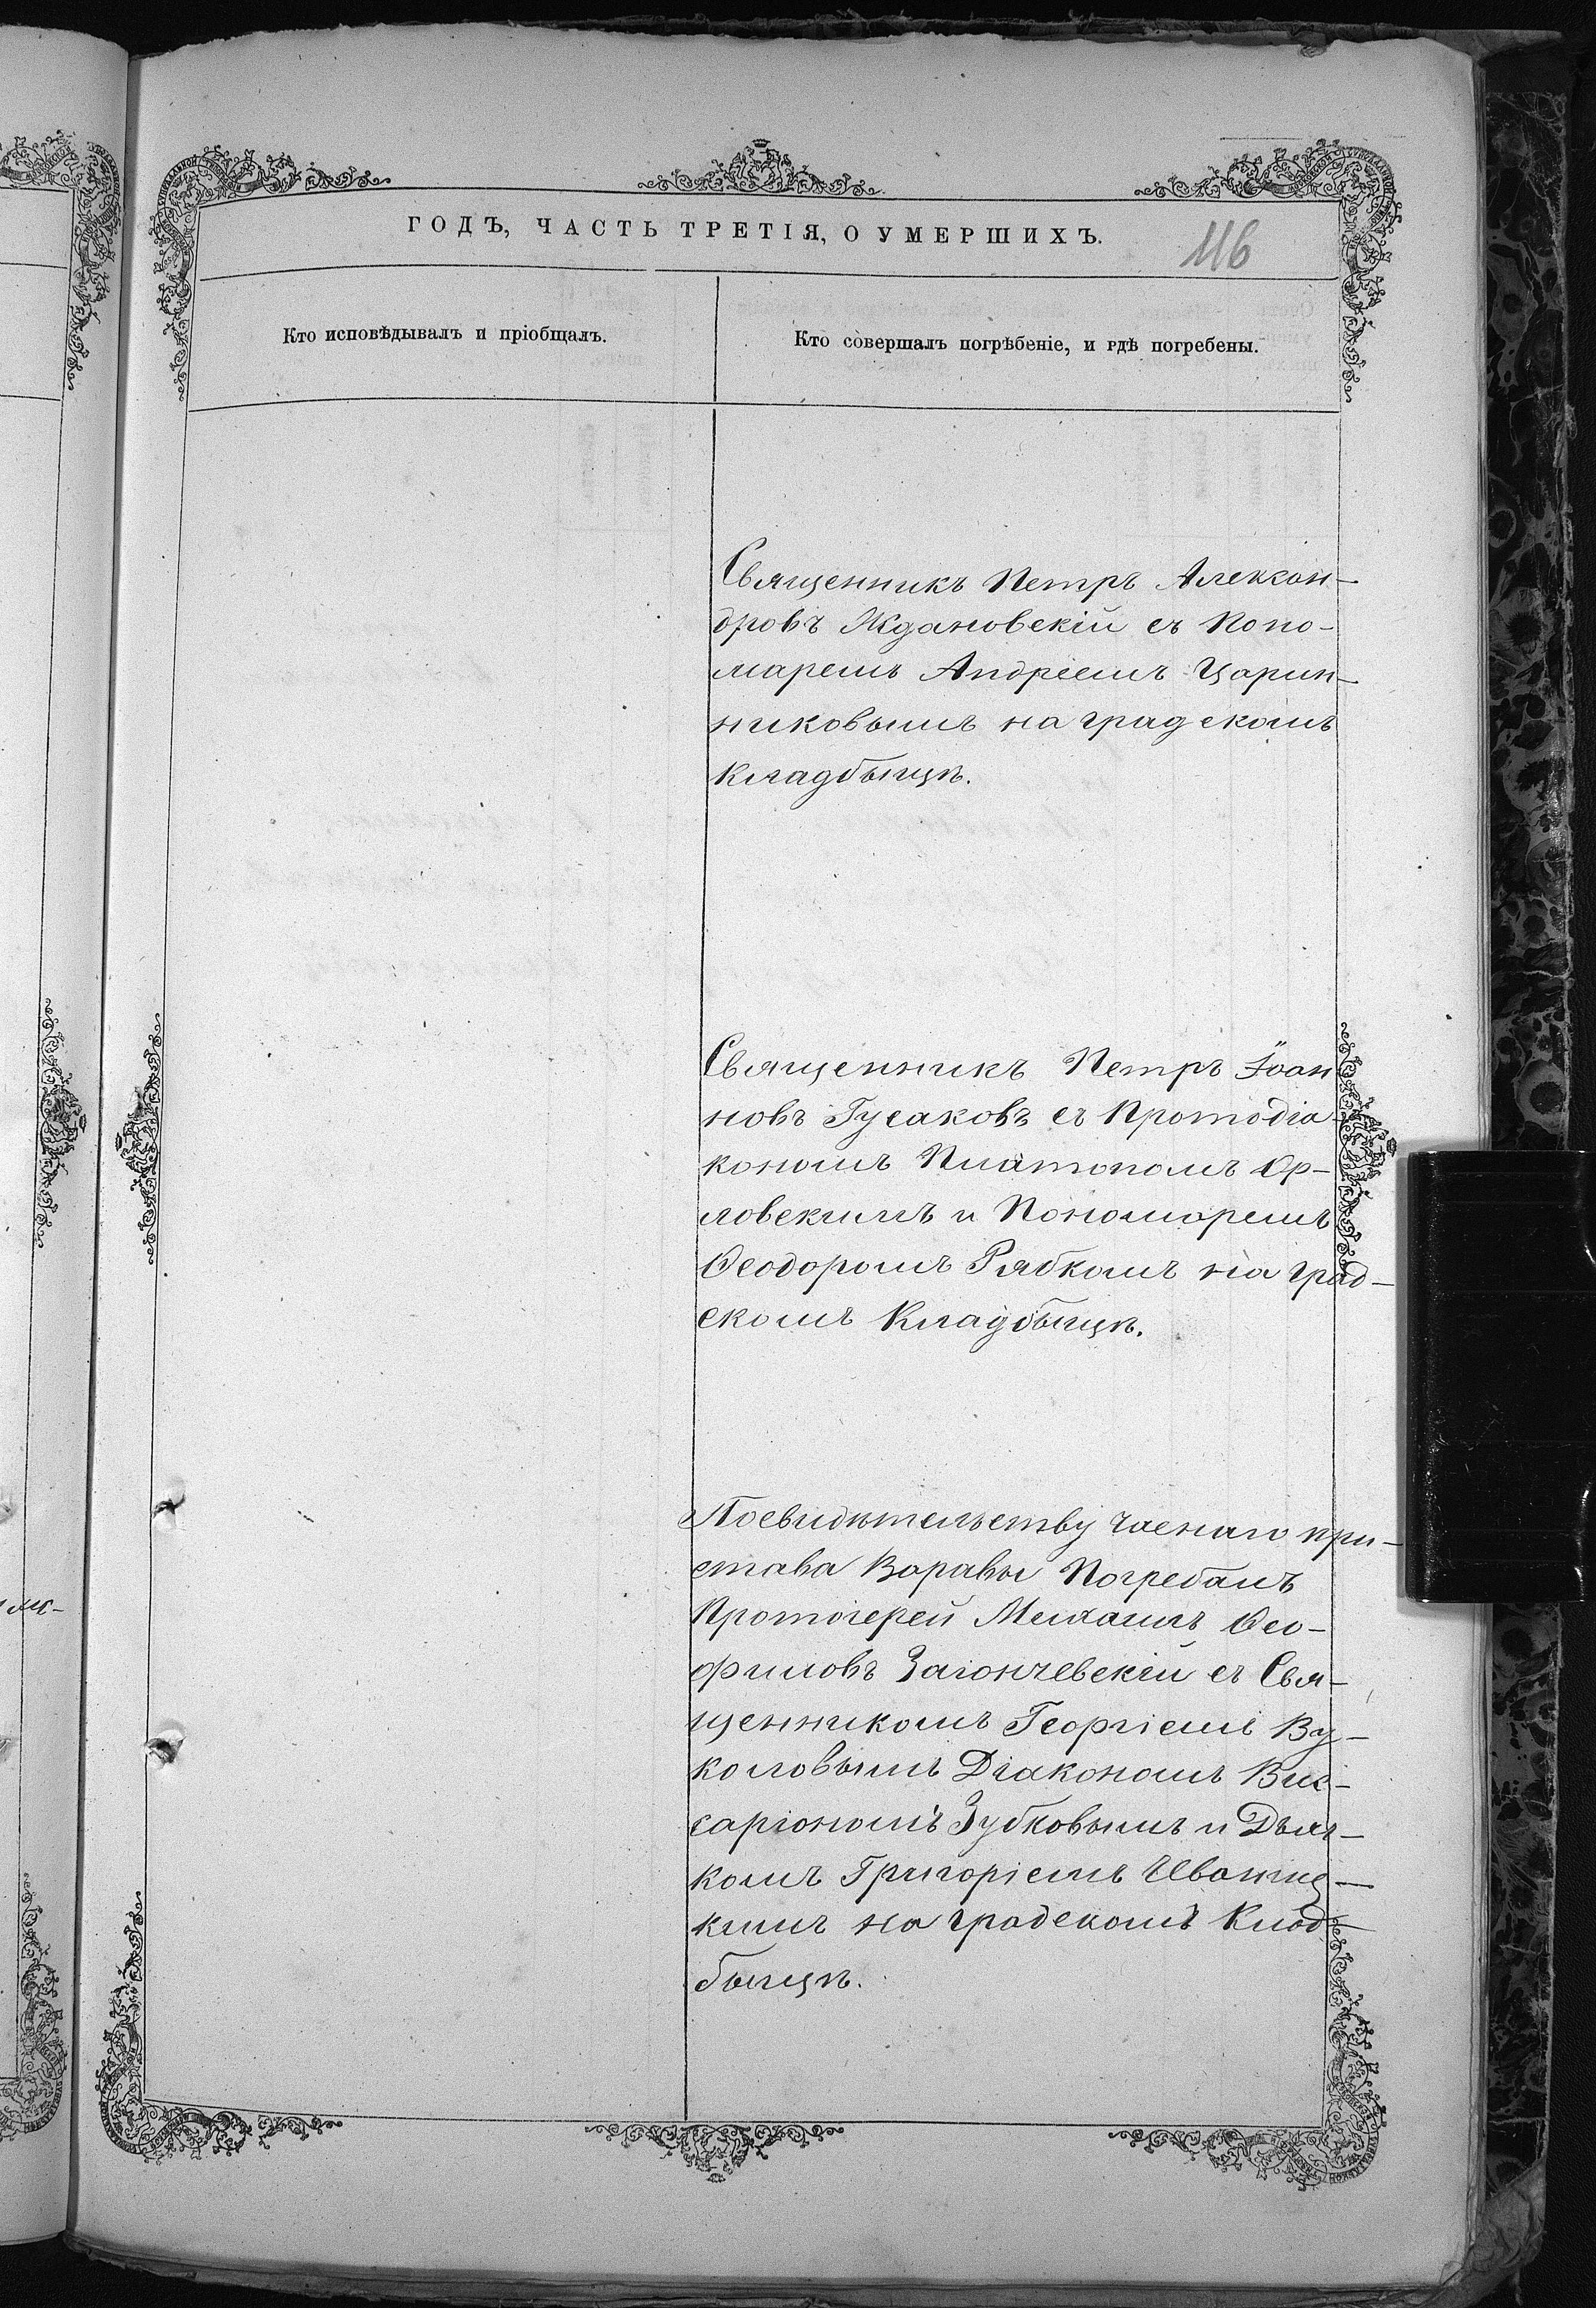 ГОДЪ, ЧАСТЬ ТРЕТІЯ, О УМЕРШИХЪ.
116
Кто исповѣдывалъ и пріобщалъ.
Кто совершалъ погрѣбеніе, и гдѣ погребены.
Священникъ Петръ Алексан-
дровъ Ждановскій съ Поно-
маремъ Андреемъ Царин-
никовымъ на градскомъ
кладбыщѣ.
Священникъ Петръ Іоан
новъ Гусаковъ съ Протодіа-
кономъ Платономъ Ор-
ловскимъ и Пономоремъ
Ѳеодоромъ Рябкомъ на град-
скомъ Кладбыщѣ.
Посвидѣтельству Часнаго при-
става Варавы Погребалъ
Протоіерей Михаилъ Ѳео-
филовъ Загончевскій съ Свя-
щенникомъ Георгіемъ Ву-
коловымъ Діакономъ Вис-
саріономъ Зубковымъ и Дья-
комъ Григоріемъ Иваниц-
кимъ на градскомъ Клад-
быщѣ.